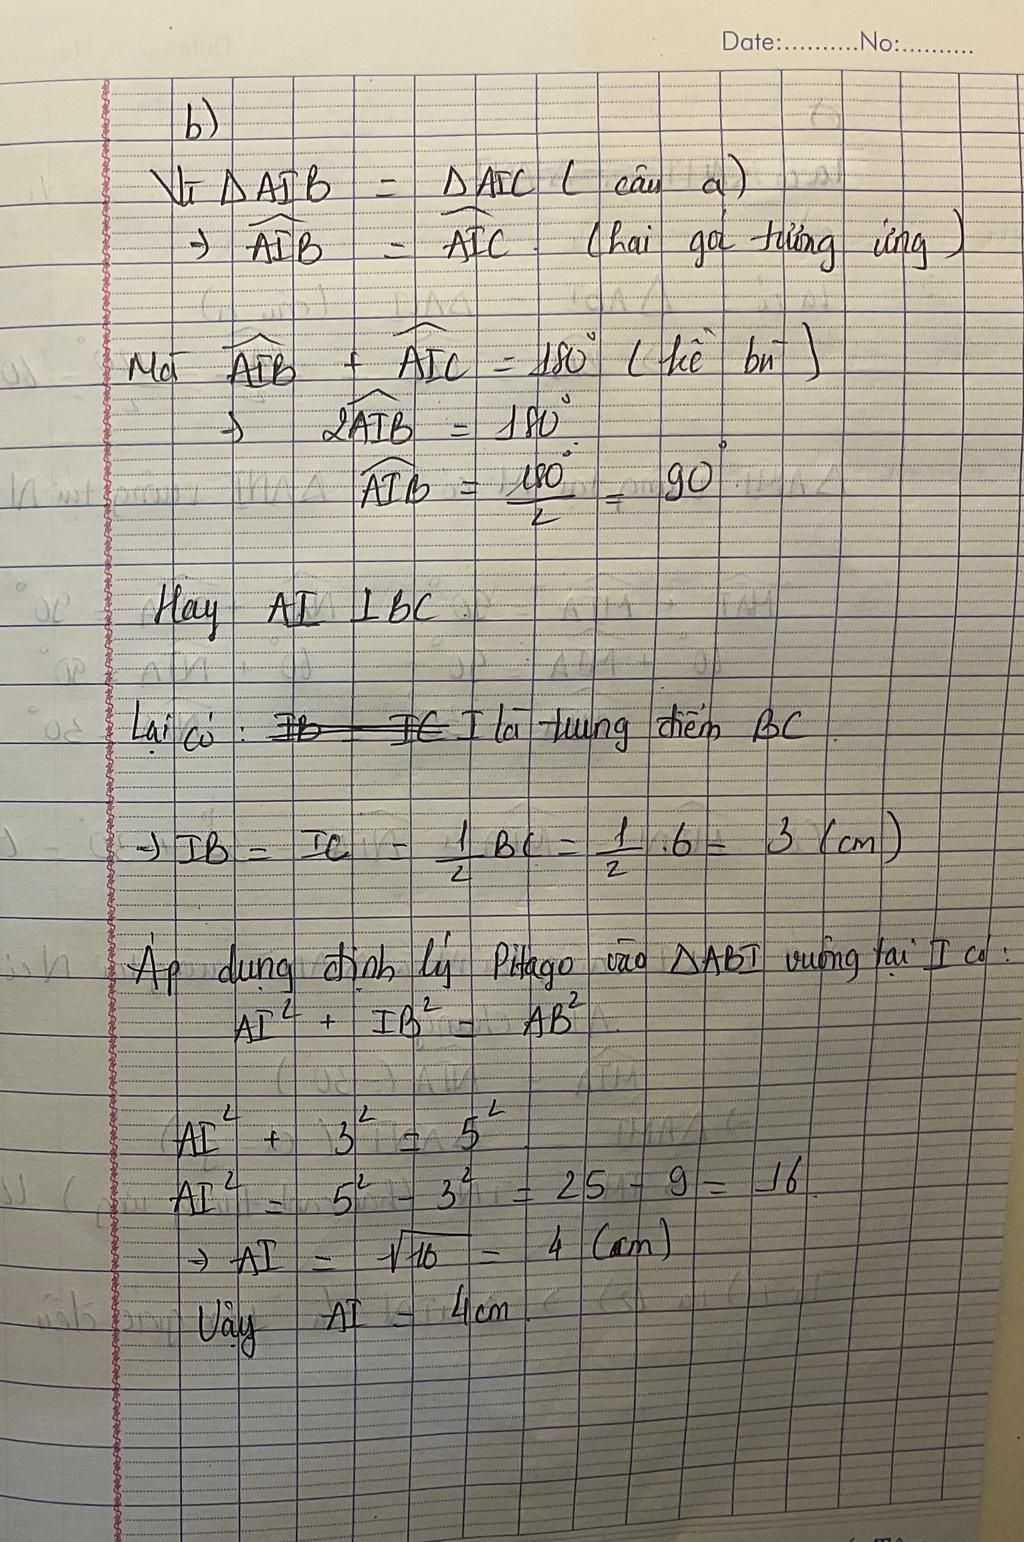 Date:..........No:..........
b)
Vì ΔAIB = ΔAIC ( câu a)
→ \widehat{AIB} = \widehat{AIC} . (hai góc tương ứng)
Mà \widehat{AIB} + \widehat{AIC} = 180° ( kề bù )
→ 2\widehat{AIB} = 180°.
\widehat{AIB} = \frac{180°}{2} = 90°
Hay AI ⊥ BC
Lại có : I là trung điểm BC .
→ IB = IC = \frac{1}{2} BC = \frac{1}{2} .6 = 3 (cm)
Áp dụng định lý Pitago vào ΔABI vuông tại I có :
AI² + IB² = AB².
AI² + 3² = 5²
AI² = 5² - 3² = 25 - 9 = 16.
→ AI = √16 = 4 (cm)
Vậy AI = 4cm.